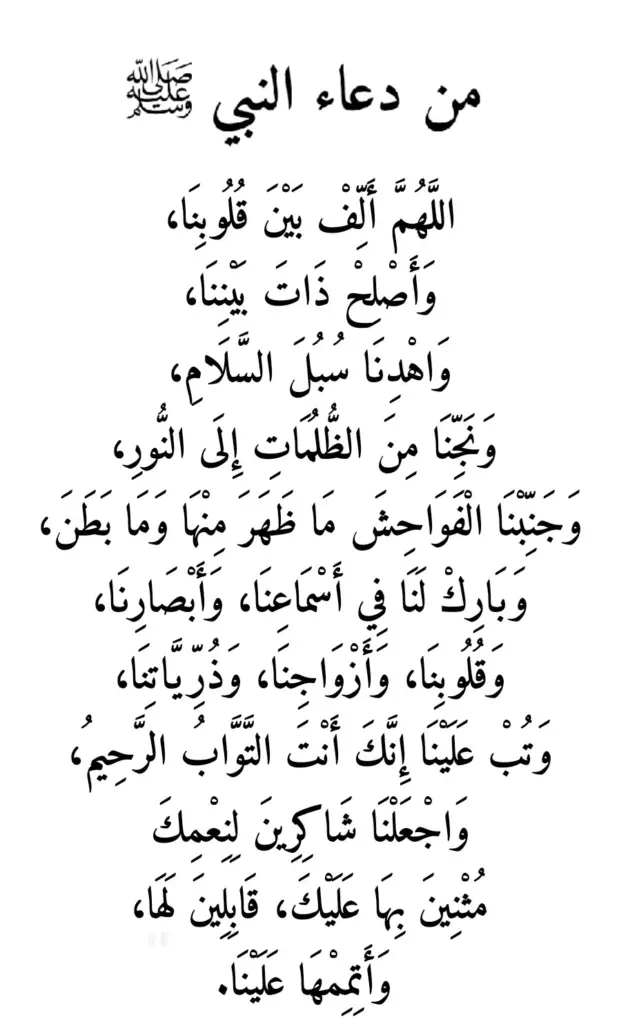 من دعاء النبي ﷺ
اللَّهُمَّ أَلِّفْ بَيْنَ قُلُوبِنَا،
وَأَصْلِحْ ذَاتَ بَيْنِنَا،
وَاهْدِنَا سُبُلَ السَّلَامِ،
وَنَجِّنَا مِنَ الظُّلُمَاتِ إِلَى النُّورِ،
وَجَنِّبْنَا الْفَوَاحِشَ مَا ظَهَرَ مِنْهَا وَمَا بَطَنَ،
وَبَارِكْ لَنَا فِي أَسْمَاعِنَا، وَأَبْصَارِنَا،
وَقُلُوبِنَا، وَأَزْوَاجِنَا، وَذُرِّيَّاتِنَا،
وَتُبْ عَلَيْنَا إِنَّكَ أَنْتَ التَّوَّابُ الرَّحِيمُ،
وَاجْعَلْنَا شَاكِرِينَ لِنِعْمِكَ
مُثْنِينَ بِهَا عَلَيْكَ، قَابِلِينَ لَهَا،
وَأَتِمِمْهَا عَلَيْنَا.